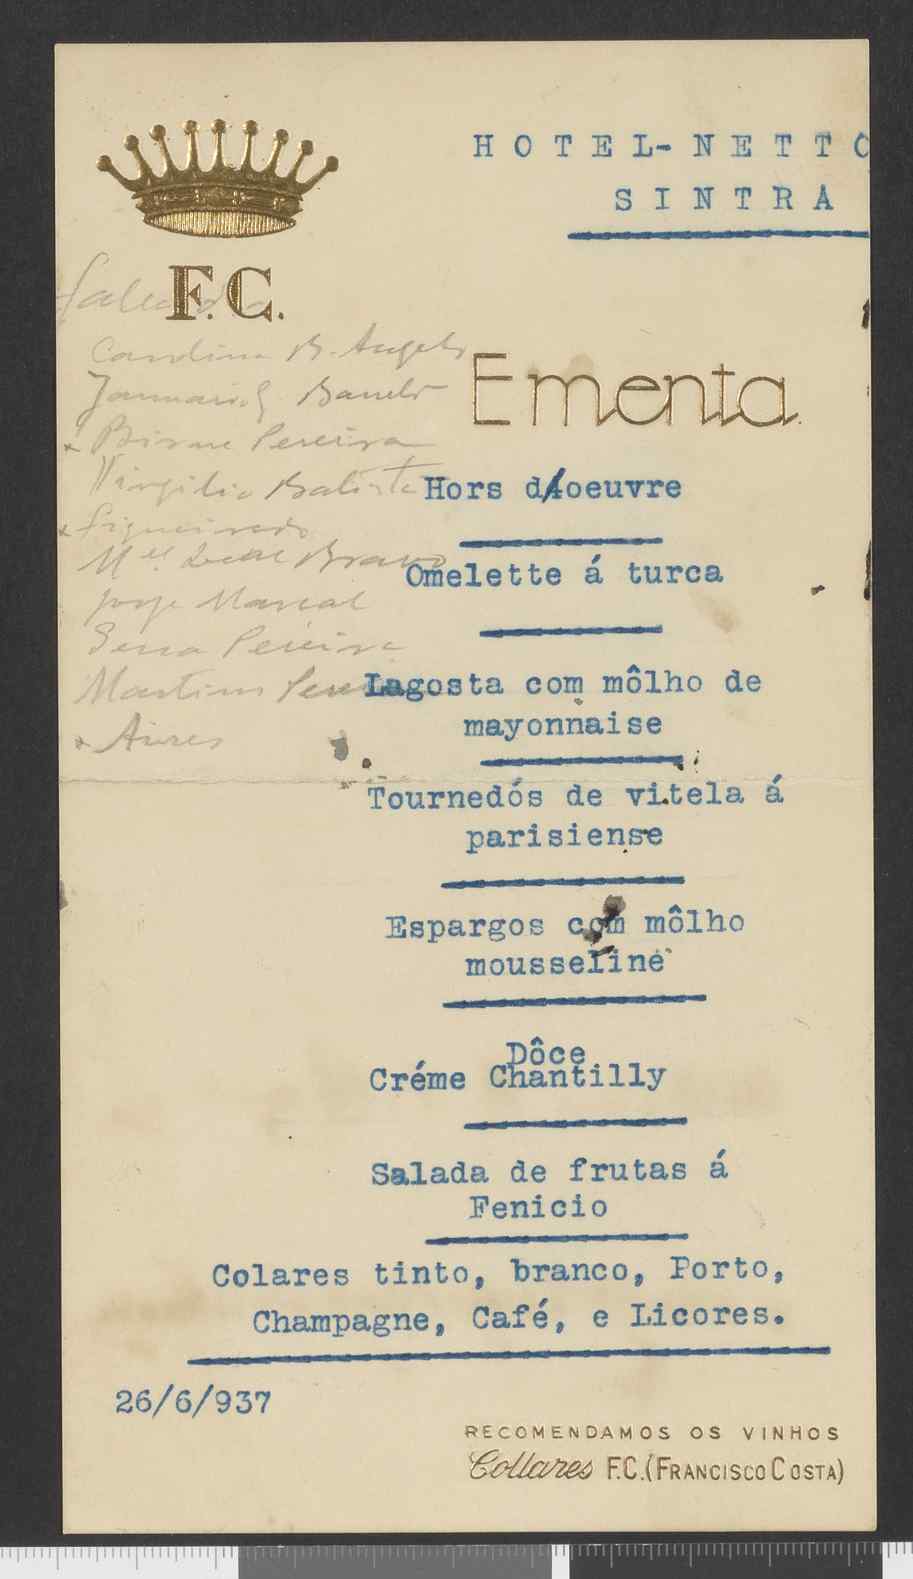 HOTEL-NETTO
SINTRA
F.C.
Carolina B. Angelo
Ementa
Pereira
Virgilio Batista
Hors d'oeuvre
Figueiredo
Omelette á turca
Jorge Marcal
Serra Pereira
Martins
Lagosta com môlho de
mayonnaise
Aires
Tournedós de vitela á
parisiense
Espargos com môlho
mousseline
Dôce
Créme Chantilly
Salada de frutas á
Fenicio
Colares tinto, branco, Porto,
Champagne, Café, e Licores.
26/6/937
RECOMENDAMOS OS VINHOS
Collares F.C. (FRANCISCO COSTA)